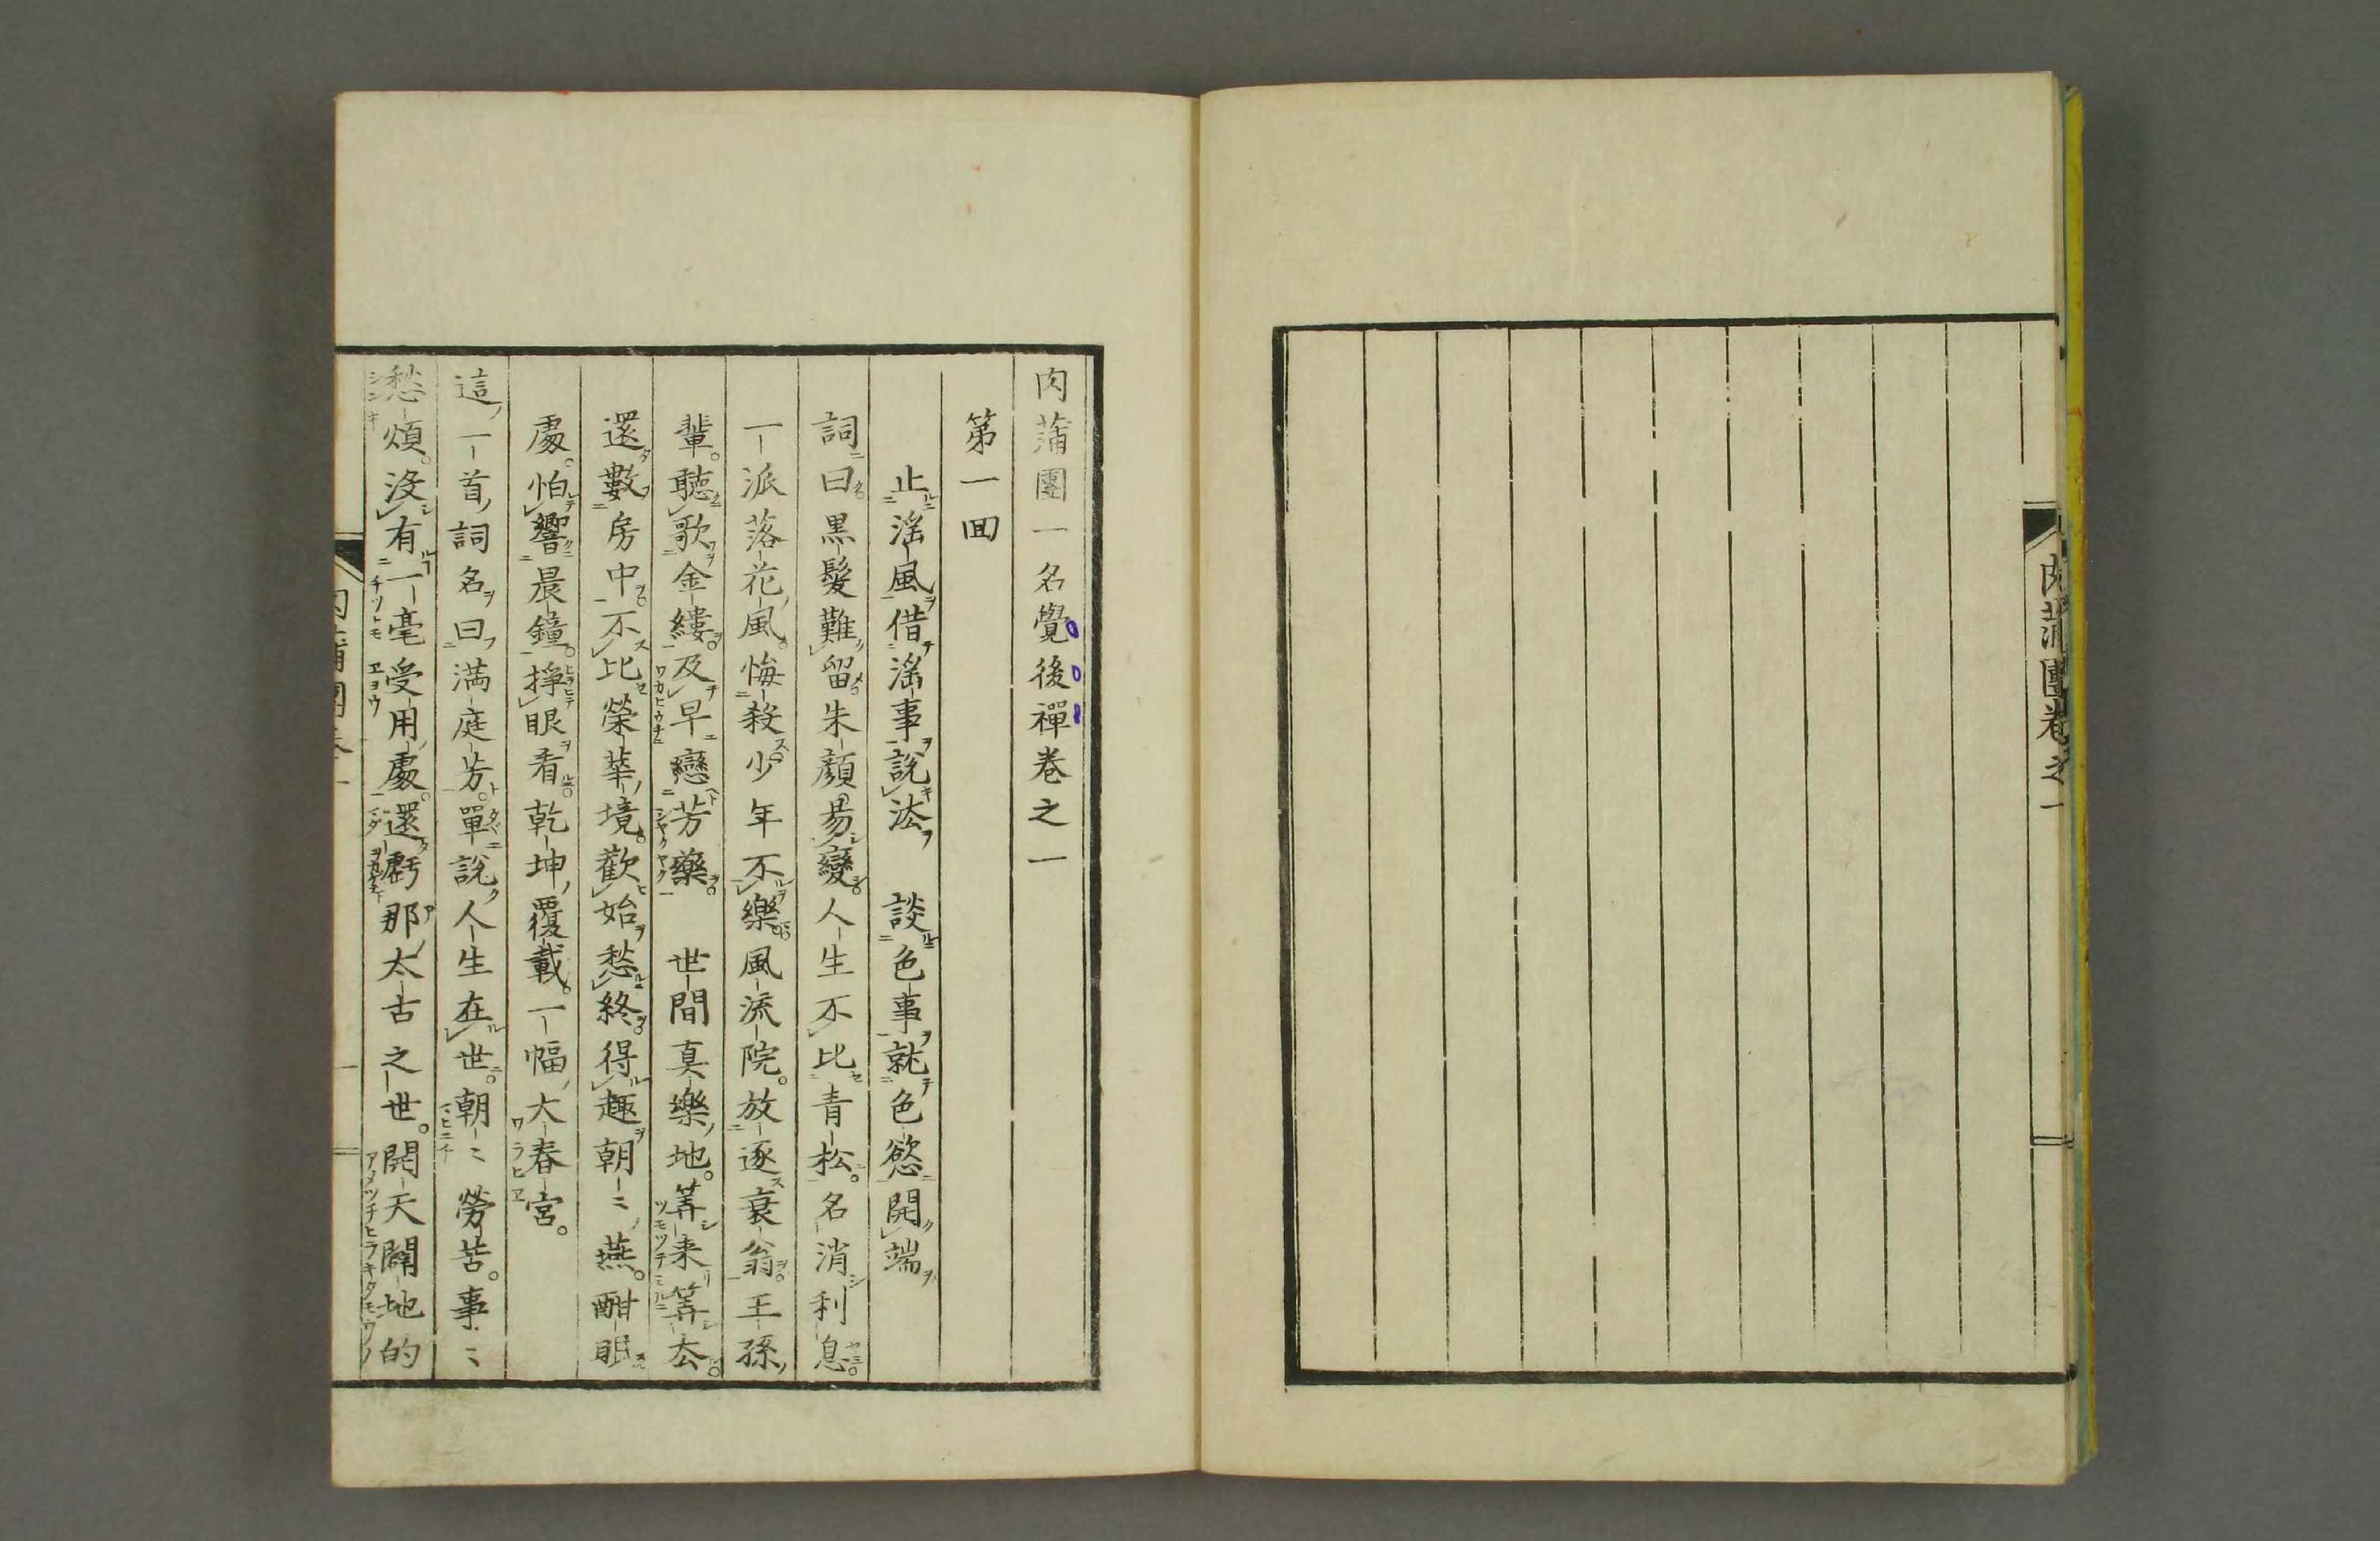 肉蒲團卷之一
肉蒲團一名覺後禪卷之一
第一回
止滛風借滛事說法　談色事就色慾開端
詞曰黒髮難留朱顔易變。人生不比青松。名消利息。
一派落花風。悔殺少年不樂風流院。放逐衰翁。王孫
輩。聽歌金縷。及早戀芳藥。世間真樂地。筭来筭厺。
還數房中。不比榮華境。歡始愁終。得趣朝〻燕。酣眠
處。怕響晨鐘。掙眼看。乾坤覆載。一幅大春宮。
這一首詞名曰滿庭芳。單說人生在世。朝〻勞苦。事〻
愁煩。沒有一毫受用處。還虧那太古之世。開天闢地的